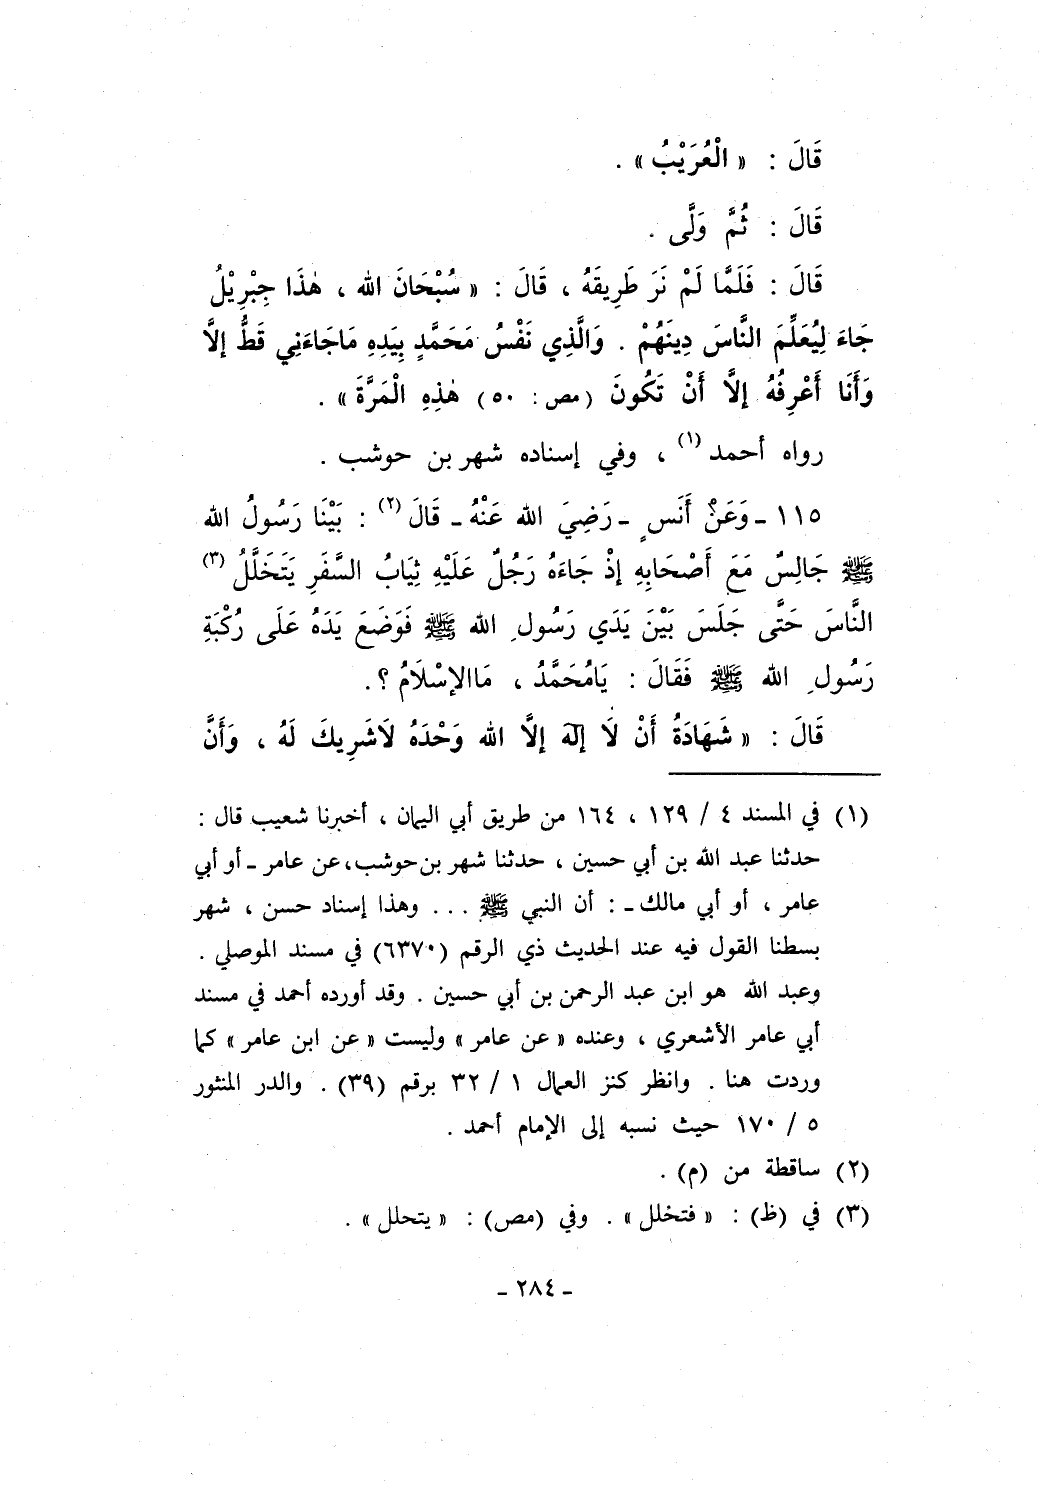 قَالَ : « الْعُرَيْبُ » .
قَالَ : ثُمَّ وَلَّى .
قَالَ : فَلَمَّا لَمْ نَرَ طَرِيقَهُ ، قَالَ : « سُبْحَانَ الله ، هٰذَا جِبْرِيْلُ
جَاءَ لِيُعَلِّمَ النَّاسَ دِينَهُمْ . وَالَّذِي نَفْسُ مَحَمَّدٍ بِيَدِهِ مَاجَاءَنِي قَطُّ إلَّا
وَأَنَا أَعْرِفُهُ إلَّا أَنْ تَكُونَ (مص : ٥٠) هٰذِهِ الْمَرَّةَ » .
رواه أحمد (١) ، وفي إسناده شهر بن حوشب .
١١٥ ـ وَعَنْ أَنَسٍ ـ رَضِيَ الله عَنْهُ ـ قَالَ (٢) : بَيْنَا رَسُولُ الله
ﷺ جَالِسٌ مَعَ أَصْحَابِهِ إذْ جَاءَهُ رَجُلٌ عَلَيْهِ ثِيَابُ السَّفَرِ يَتَخَلَّلُ (٣)
النَّاسَ حَتَّى جَلَسَ بَيْنَ يَدَي رَسُولِ الله ﷺ فَوَضَعَ يَدَهُ عَلَى رُكْبَةِ
رَسُولِ الله ﷺ فَقَالَ : يَامُحَمَّدُ ، مَاالإسْلَامُ ؟ .
قَالَ : « شَهَادَةُ أَنْ لَا إلٰهَ إلَّا الله وَحْدَهُ لَاشَرِيكَ لَهُ ، وَأَنَّ
(١) في المسند ٤ / ١٢٩ ، ١٦٤ من طريق أبي اليمان ، أخبرنا شعيب قال :
حدثنا عبد الله بن أبي حسين ، حدثنا شهر بن حوشب ، عن عامر ـ أو أبي
عامر ، أو أبي مالك ـ : أن النبي ﷺ ... وهذا إسناد حسن ، شهر
بسطنا القول فيه عند الحديث ذي الرقم (٦٣٧٠) في مسند الموصلي .
وعبد الله هو ابن عبد الرحمن بن أبي حسين . وقد أورده أحمد في مسند
أبي عامر الأشعري ، وعنده « عن عامر » وليست « عن ابن عامر » كما
وردت هنا . وانظر كنز العمال ١ / ٣٢ برقم (٣٩) . والدر المنثور
٥ / ١٧٠ حيث نسبه إلى الإمام أحمد .
(٢) ساقطة من (م) .
(٣) في (ظ) : « فتخلل » . وفي (مص) : « يتحلل » .
ـ ٢٨٤ ـ